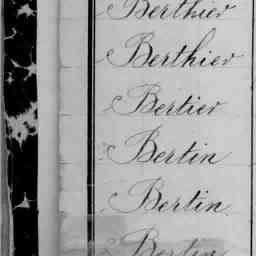 Berthier
Berthier
Bertier
Bertin
Bertin
Bertin